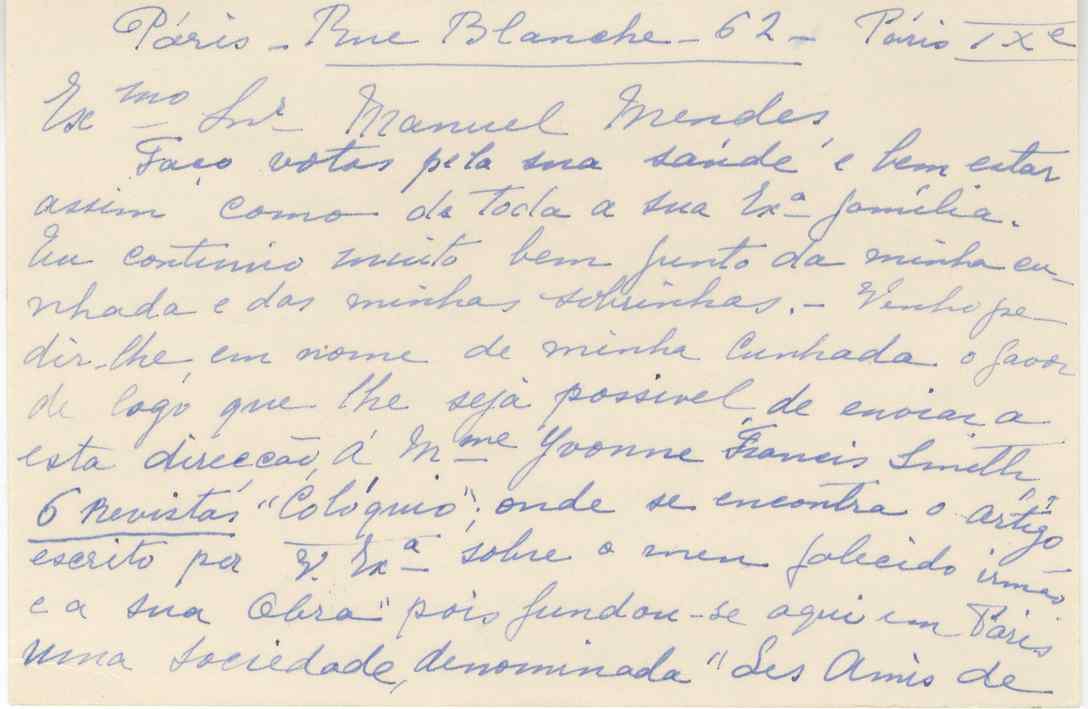 Páris - Rue Blanche - 62 - Páris IXe
Exmo Snr Manuel Mendes,
Faço votos pela sua saúde e bem estar
assim como de toda a sua Exª família.
Eu continuo muito bem junto da minha cu-
nhada e das minhas sobrinhas. - Venho pe-
dir-lhe, em nome de minha Cunhada o favor
de logo que lhe seja possivel, de enviar a
esta direcção, á Mme Yvonne Francis Smith,
6 Revistas "Colóquio", onde se encontra o artigo
escrito por V. Exª sobre o meu falecido irmão
e a sua Obra" pois fundou-se aqui em Páris
uma sociedade, denominada "Les Amis de